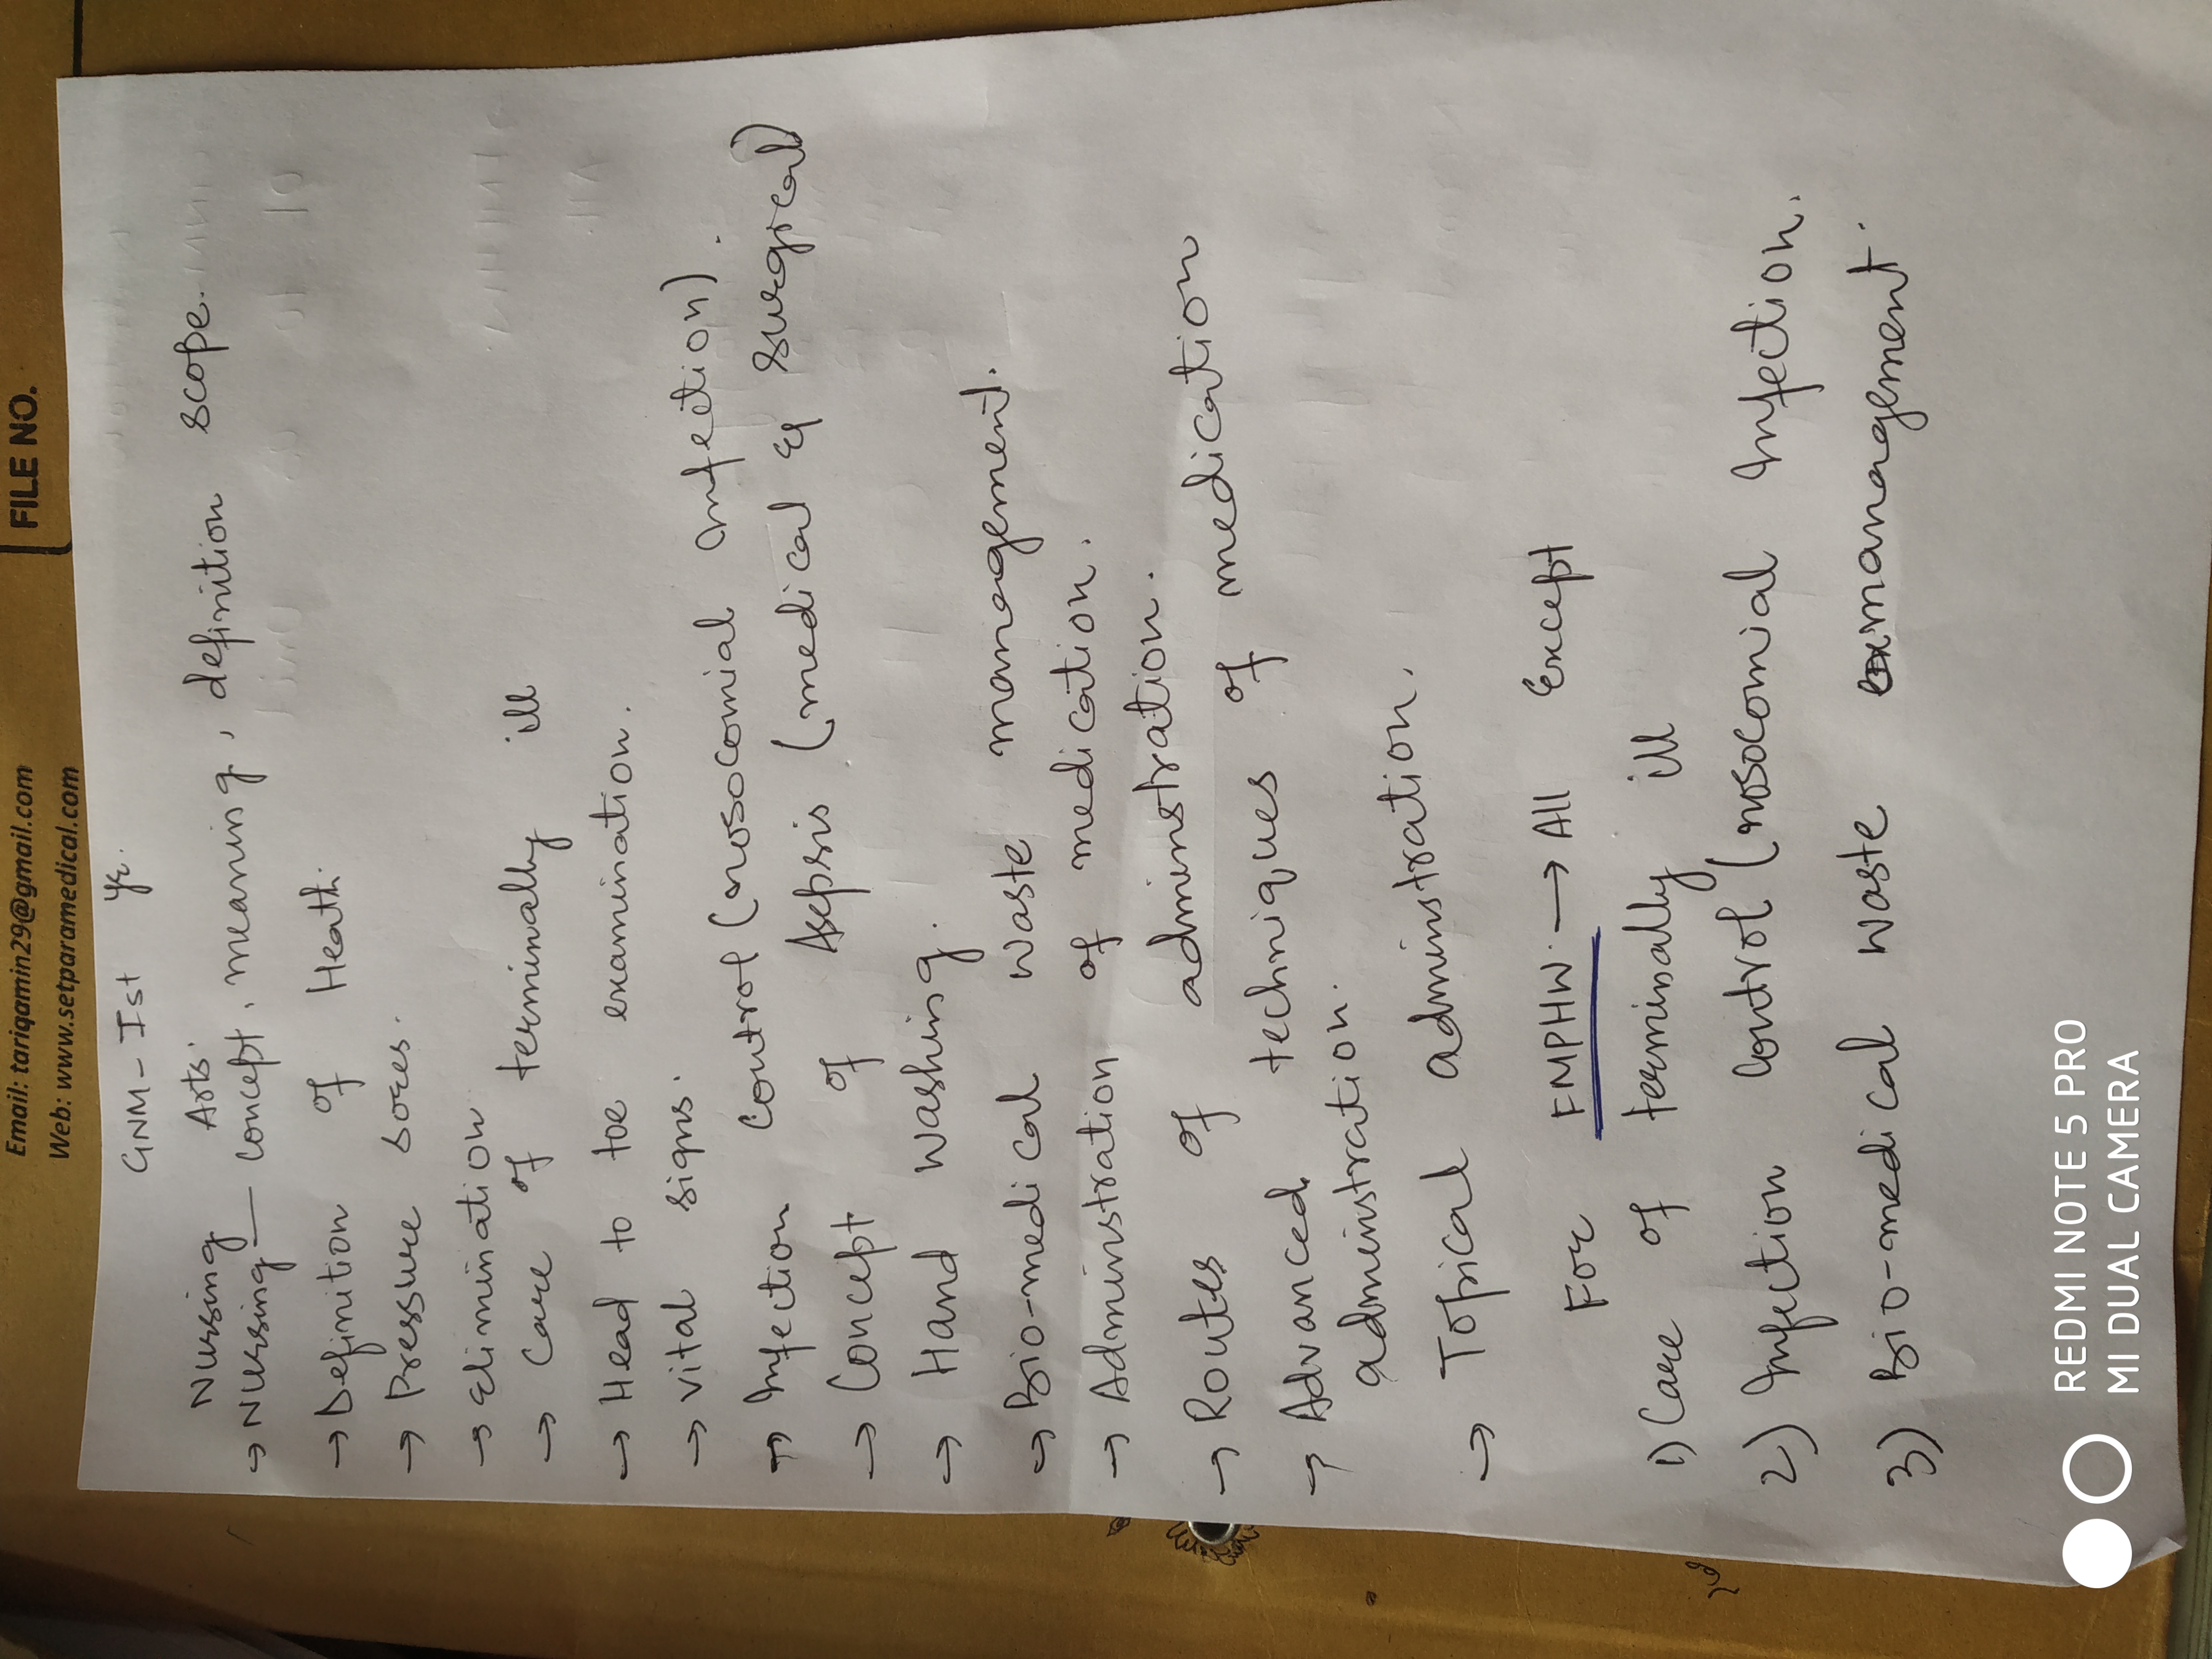 FILE NO.
Email: tariqamin29@gmail.com
Web: www.setparamedical.com
GNM-Ist yr.
Nursing Arts.
→ Nursing — concept, meaning, definition scope.
→ Definition of Heath.
→ Pressure sores.
→ Elimination
→ Care of terminally ill
→ Head to toe examination.
→ vital signs.
→ Infection control (nosocomial infection).
→ Concept of Asepsis (medical & surgical)
→ Hand washing.
→ Bio-medical waste management.
→ Administration of medication.
→ Routes of administration.
→ Advanced techniques of medication
administration.
→ Topical administration.
For FMPHW. → All Except
1) Care of terminally ill
2) Infection control (nosocomial Infection.
3) Bio-medical waste management.
REDMI NOTE 5 PRO
MI DUAL CAMERA